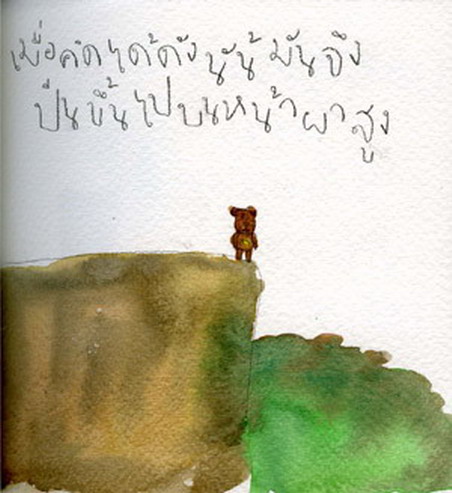 เมื่อคิดได้ดังนั้น มันจึง
ปีนขึ้นไปบนหน้าผาสูง